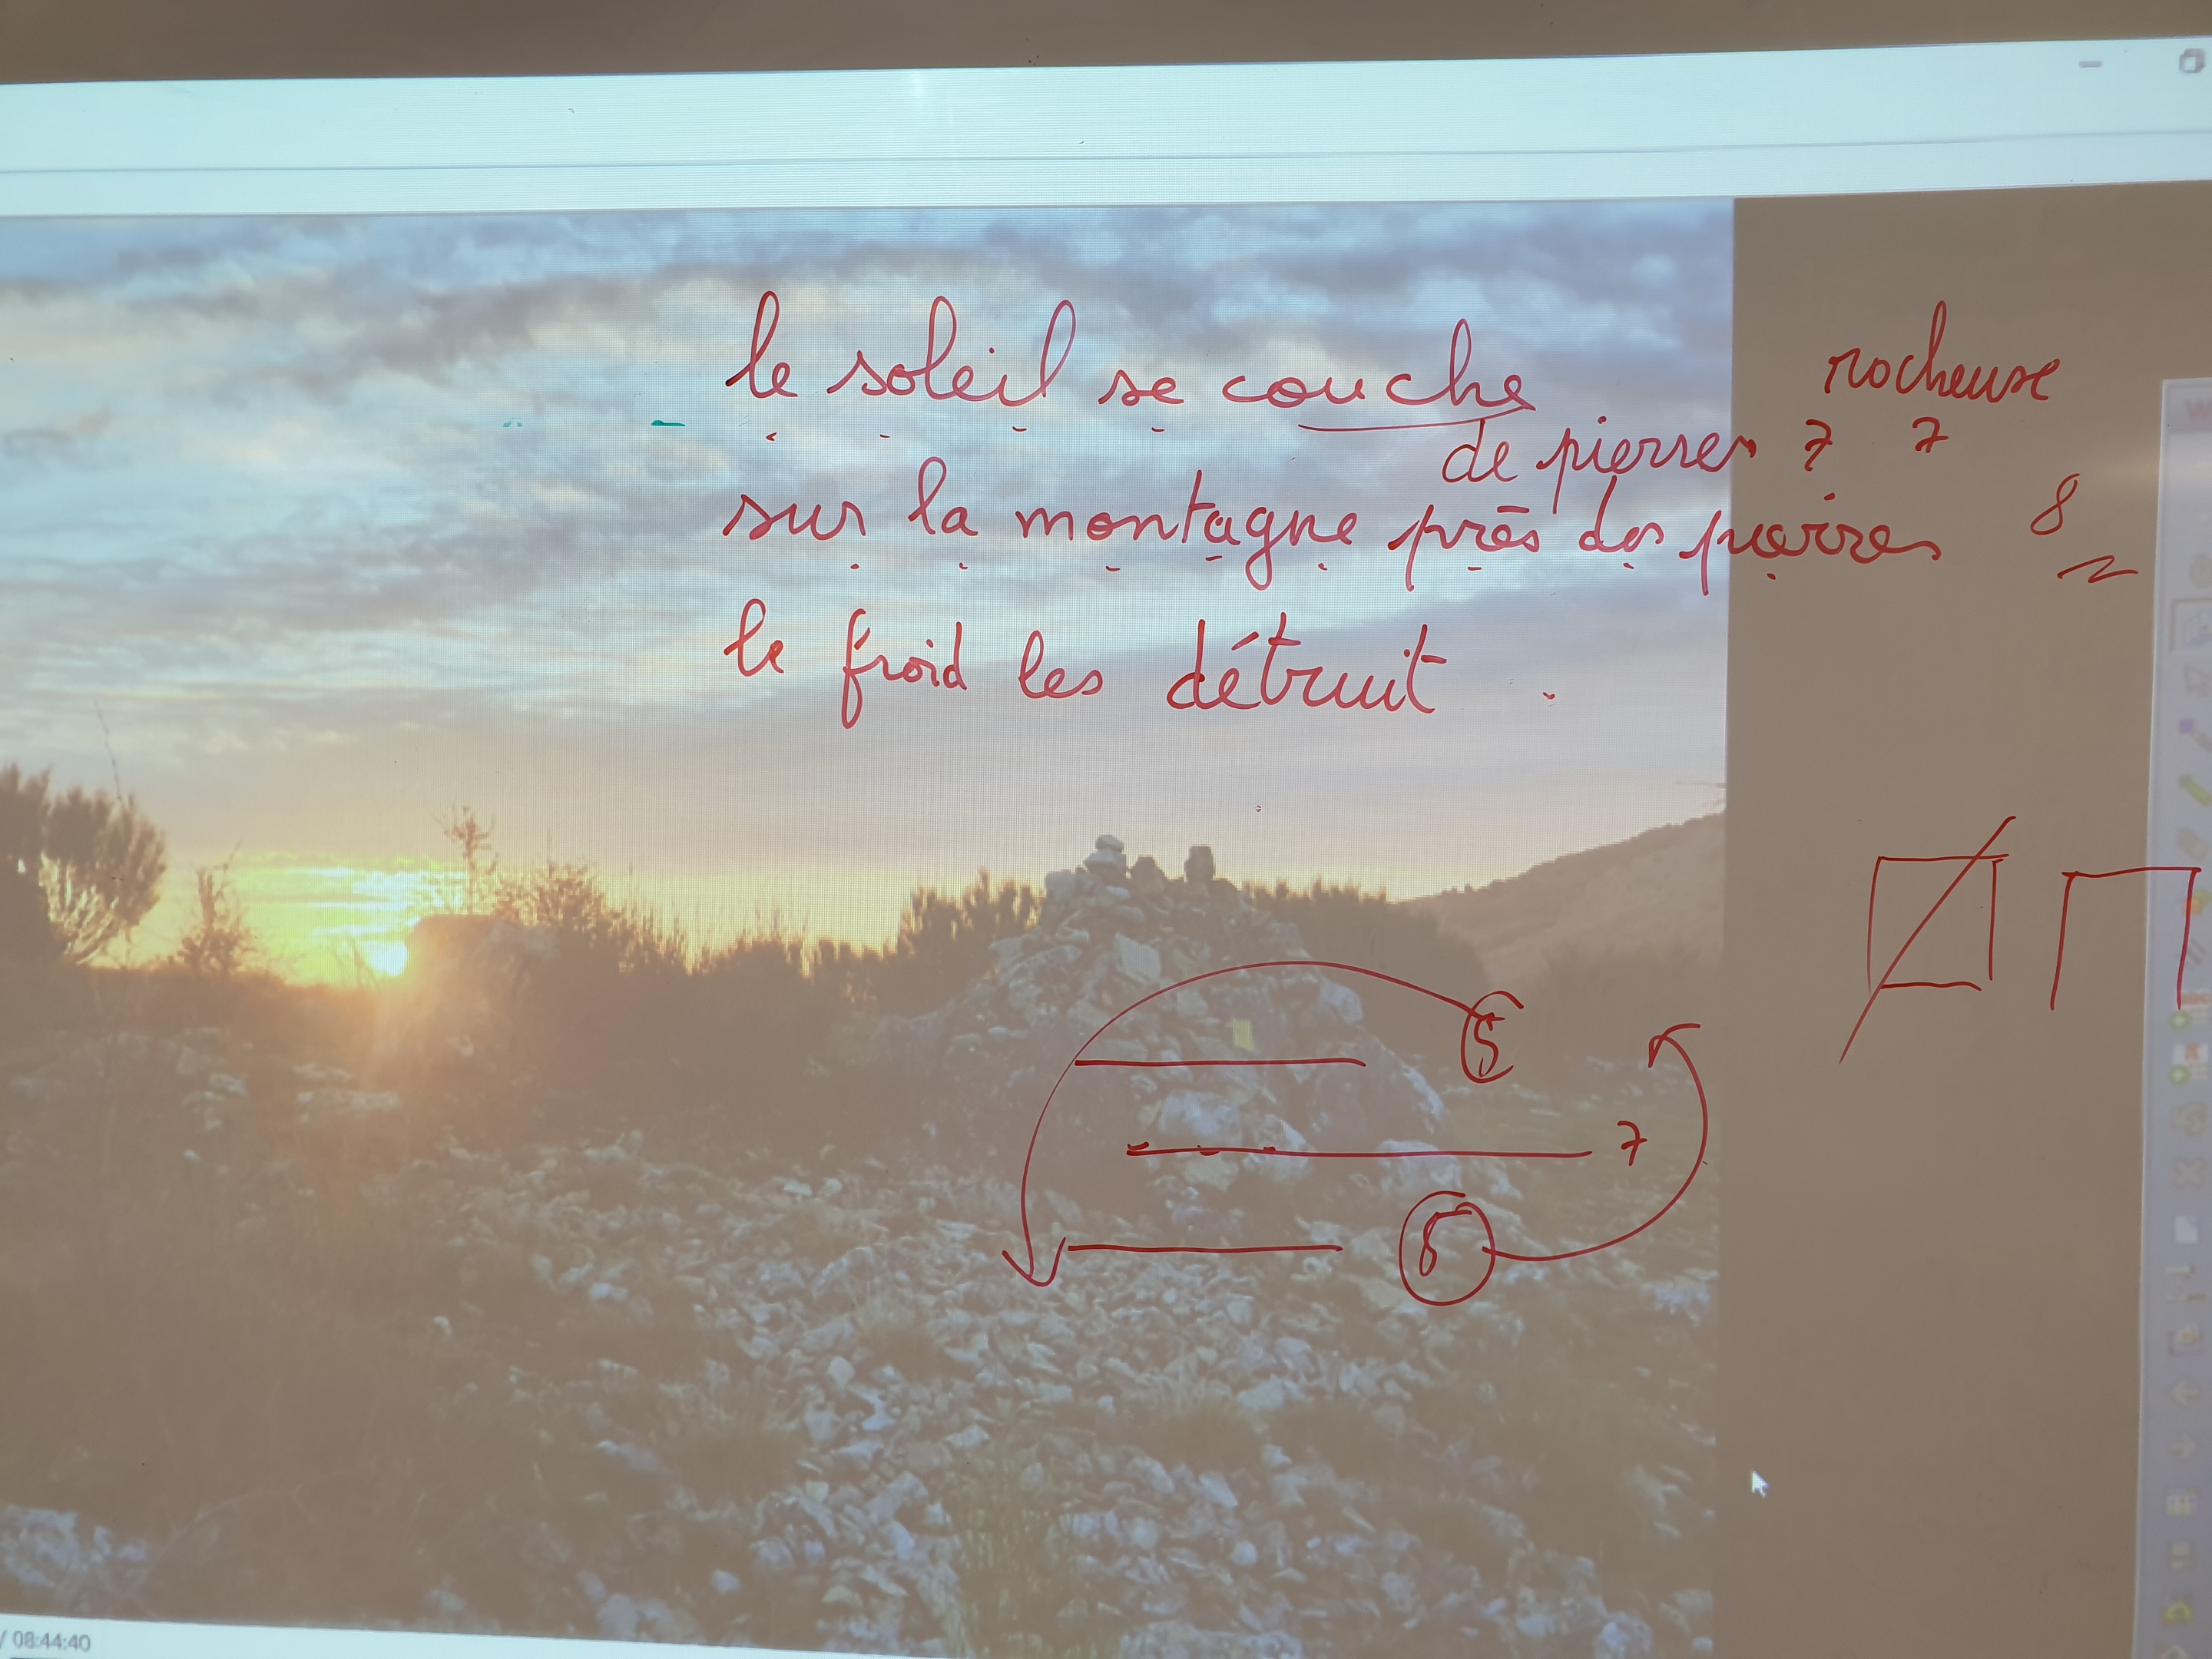 le soleil se couche
rocheuse
de pierres 7 7
sur la montagne près des pierres 8
le froid les détruit .
5
7
5
/ 08:44:40